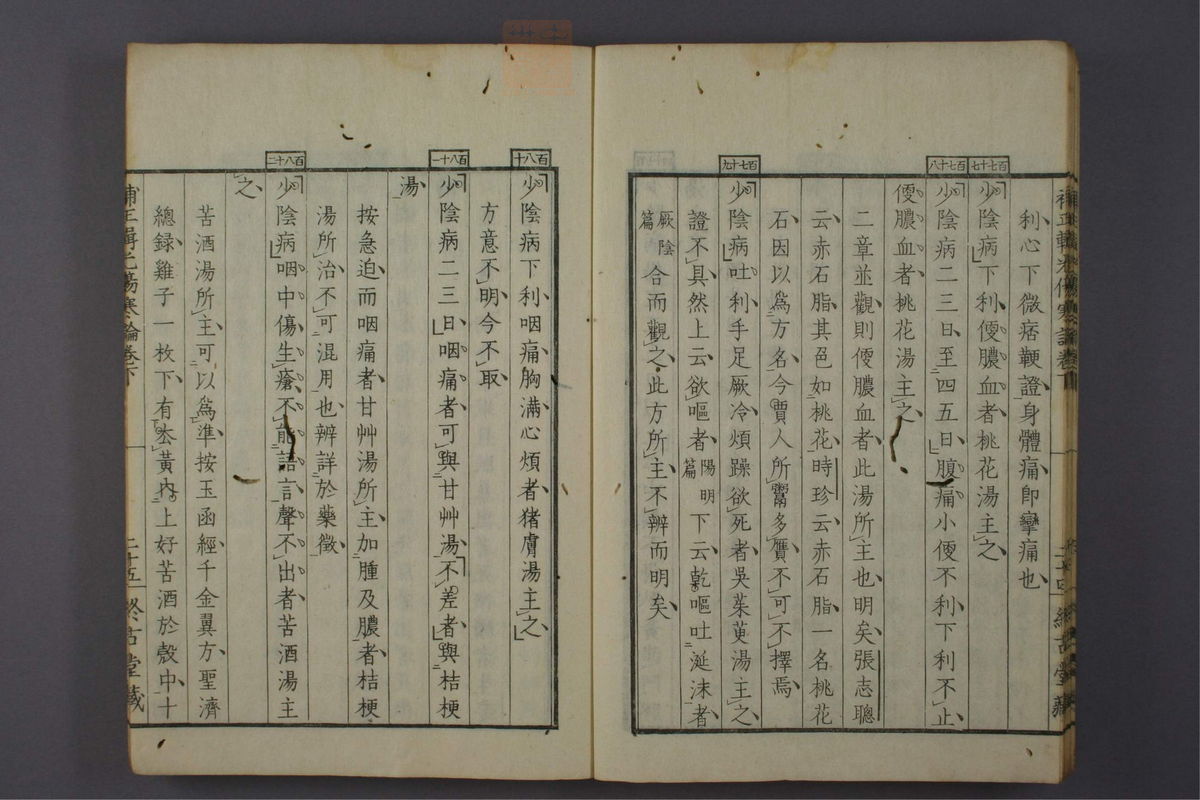 利心下微痞鞕證身體痛卽攣痛也
百七十七
少陰病下利便膿血者桃花湯主之
百七十八
少陰病二三日至四五日腹痛小便不利下利不止
便膿血者桃花湯主之
二章並觀則便膿血者此湯所主也明矣張志聰
云赤石脂其色如桃花時珍云赤石脂一名桃花
石因以爲方名今賈人所鬻多贋不可不擇焉
百七十九
少陰病吐利手足厥冷煩躁欲死者吳茱萸湯主之
證不具然上云欲嘔者陽明篇下云乾嘔吐涎沫者
厥陰篇合而觀之此方所主不辨而明矣
百八十
少陰病下利咽痛胸滿心煩者猪膚湯主之
方意不明今不取
百八十一
少陰病二三日咽痛者可與甘艸湯不差者與桔梗
湯
按急迫而咽痛者甘艸湯所主加腫及膿者桔梗
湯所治不可混用也辨詳於藥徵
百八十二
少陰病咽中傷生瘡不能語言聲不出者苦酒湯主
之
苦酒湯所主可以爲準按玉函經千金翼方聖濟
總録雞子一枚下有去黃內上好苦酒於殼中十
補正輯光傷寒論卷下 二十五 終古堂藏